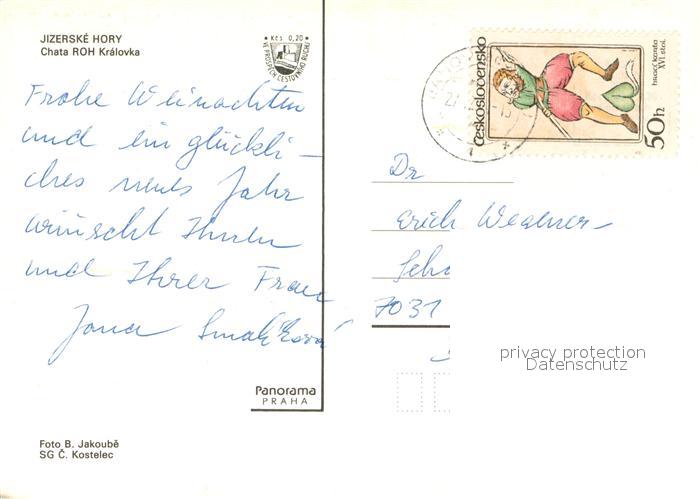 JIZERSKÉ HORY
Chata ROH Královka
Kčs 0,20
VE PROSPĚCH CESTOVNÍHO RUCHU
Československo
hrací karta
XVI. stol.
50h
Frohe Weinachten
und ein glückli-
ches neues Jahr
wünscht Ihnen
und Ihrer Frau
Jana
Dr
Erich
7031
privacy protection
Datenschutz
Panorama
PRAHA
Foto B. Jakoubě
SG Č. Kostelec